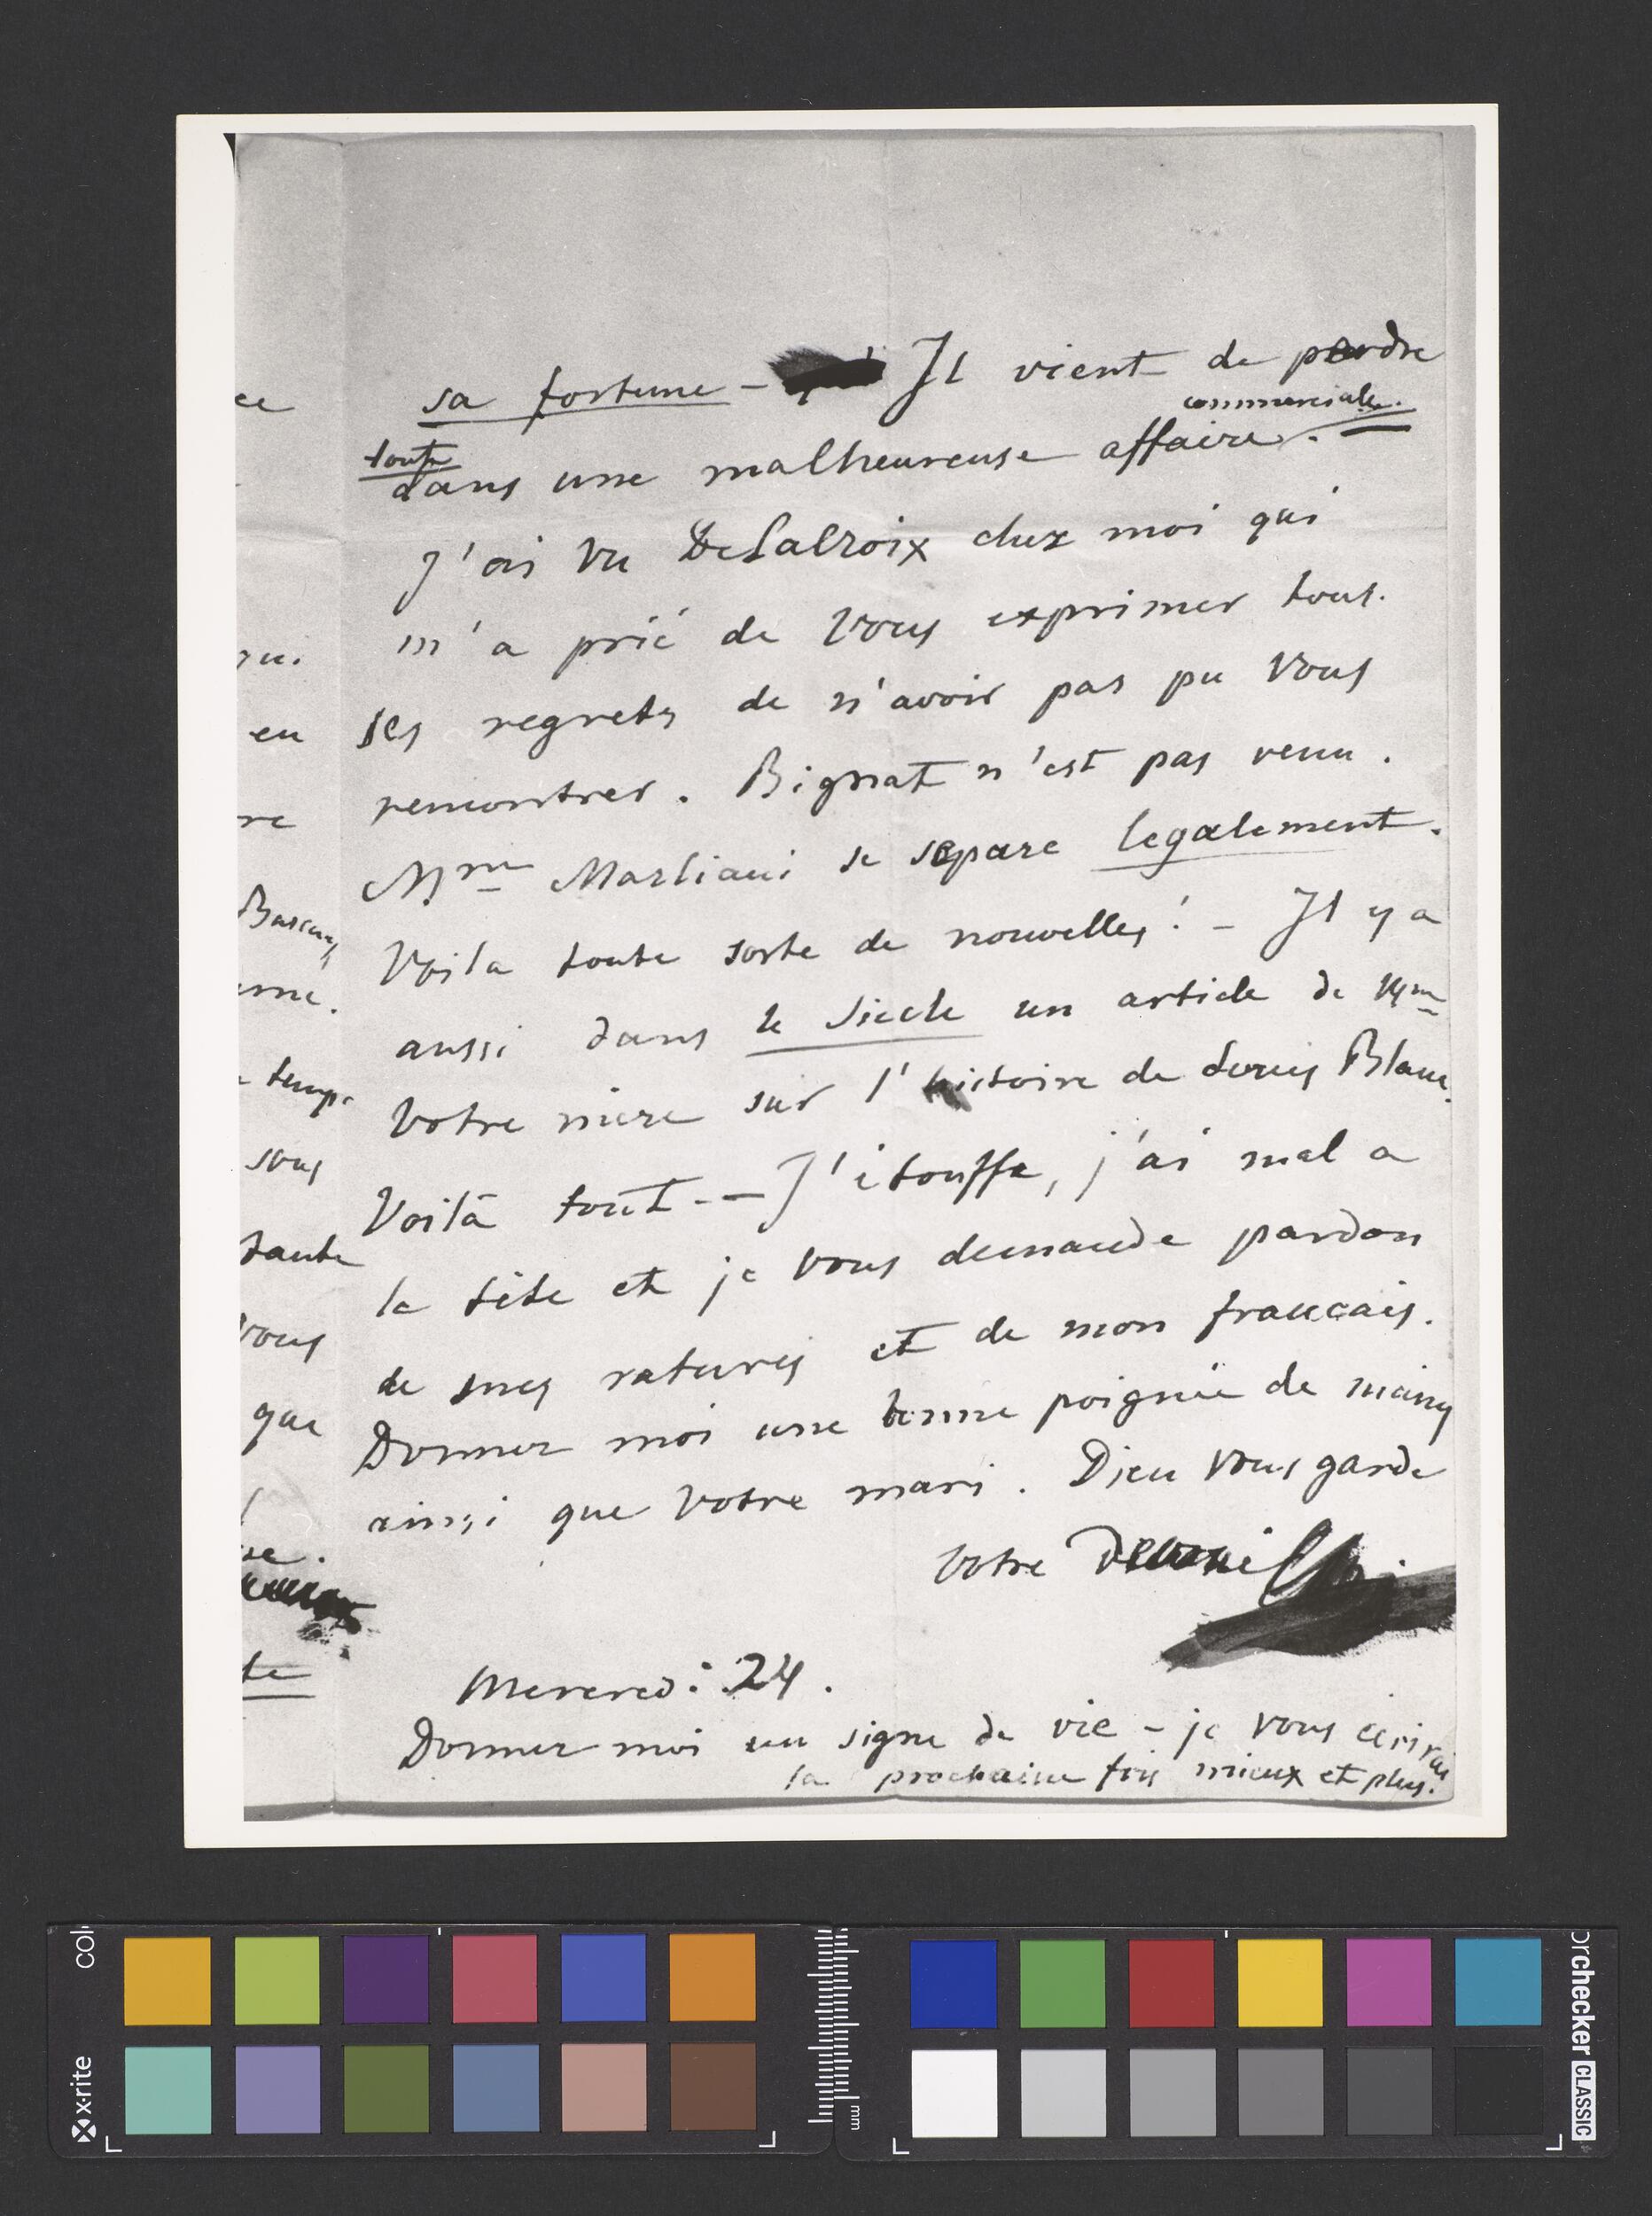 sa fortune - Il vient de perdre
commerciale.
toute
dans une malheureuse affaire.
J'ai vu DeLaCroix chez moi qui
m'a prié de vous exprimer tous
ses regrets de n'avoir pas pu vous
rencontrer. Bignat n'est pas venu.
Mme Marliani se separe legalement.
Voila toute sorte de nouvelles! - Il y a
aussi dans le Siecle un article de Mme
votre mère sur l'histoire de Louis Blanc.
Voilà tout -- J'étouffe, j'ai mal a
la tête et je vous demande pardon
de mes ratures et de mon francais.
Donner moi une bonne poignée de mains
ainsi que votre mari. Dieu vous garde
votre
Mercredi 24.
Donner moi un signe de vie - je vous écrirai
la prochaine fois mieux et plus.
ce
qui
en
re
temps
sous
tante
vous
que
te
x-rite
mm
orchecker CLASSIC